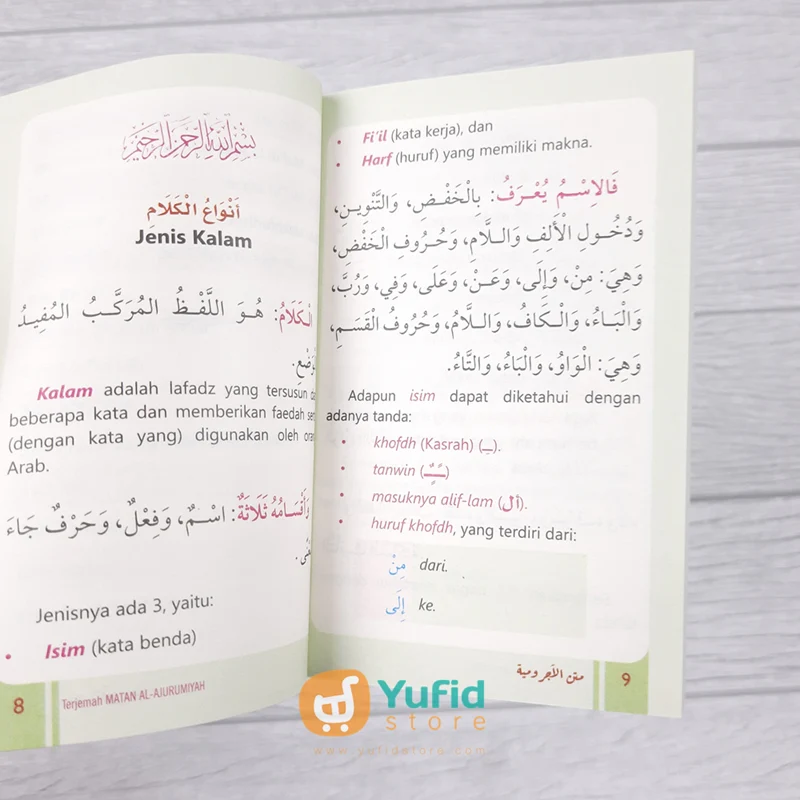 بِسْمِ اللَّهِ الرَّحْمٰنِ الرَّحِيْمِ
أَنْوَاعُ الْكَلَامِ
Jenis Kalam
الْكَلَامُ: هُوَ اللَّفْظُ المُرَكَّبُ المُفِيدُ
Kalam adalah lafadz yang tersusun
beberapa kata dan memberikan faedah
(dengan kata yang) digunakan oleh
Arab.
وَأَقْسَامُهُ ثَلَاثَةٌ: اسْمٌ، وَفِعْلٌ، وَحَرْفٌ جَاءَ
Jenisnya ada 3, yaitu:
• Isim (kata benda)
8 Terjemah MATAN AL-AJURUMIYAH
• Fi'il (kata kerja), dan
• Harf (huruf) yang memiliki makna.
فَالِاسْمُ يُعْرَفُ: بِالْخَفْضِ، وَالتَّنْوِينِ،
وَدُخُولِ الْأَلِفِ وَاللَّامِ، وَحُرُوفِ الْخَفْضِ،
وَهِيَ: مِنْ، وَإِلَى، وَعَنْ، وَعَلَى، وَفِي، وَرُبَّ،
وَالْبَاءُ، وَالْكَافُ، وَاللَّامُ، وَحُرُوفُ الْقَسَمِ،
وَهِيَ: الْوَاوُ، وَالْبَاءُ، وَالتَّاءُ.
Adapun isim dapat diketahui dengan
adanya tanda:
• khofdh (Kasrah) (ـِـ).
• tanwin (ـًـٍـٌـ)
• masuknya alif-lam (ال).
• huruf khofdh, yang terdiri dari:
مِنْ dari.
إِلَى ke.
متن الآجرومية 9
Yufid
store
www.yufidstore.com